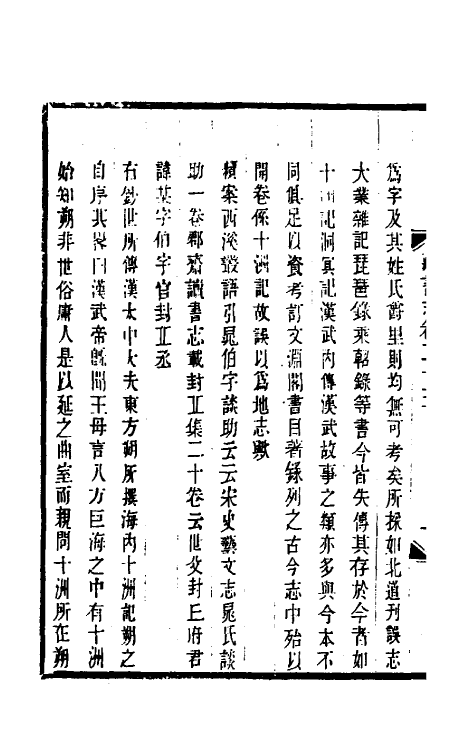 為字及其姓氏爵里則均無可考矣所採如北道刊誤志
大業雜記琵琶錄乘軺錄等書今皆失傳其存於今者如
十洲記洞冥記漢武內傳漢武故事之類亦多與今本不
同俱足以資考訂文淵閣書目著錄列之古今志中殆以
開卷係十洲記故誤以為地志歟
積案西溪叢語引晁伯宇談助云云宋史藝文志晁氏談
助一卷郡齋讀書志載封丘集二十卷云世父封丘府君
諱某字伯宇官封丘丞
右鈔世所傳漢太中大夫東方朔所撰海內十洲記朔之
自序其畧曰漢武帝既聞王母言八方巨海之中有十洲
始知朔非世俗庸人是以延之曲室而親問十洲所在朔